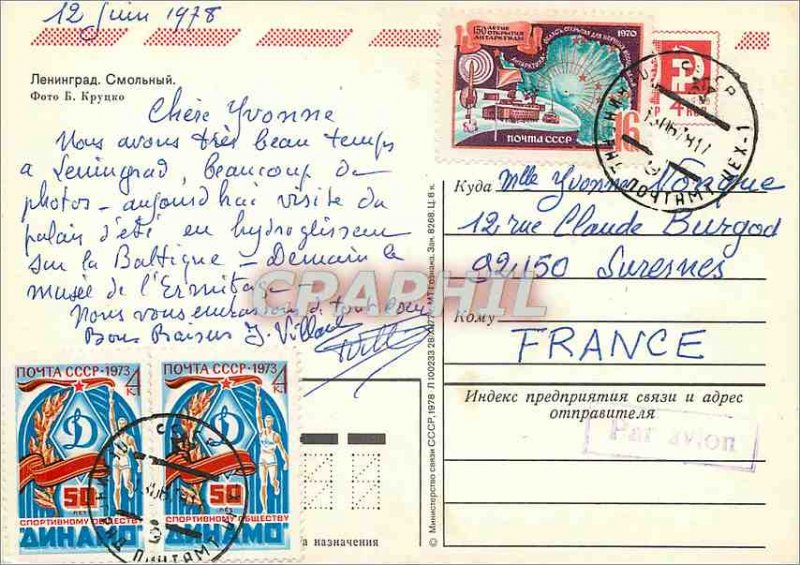 12 Juin 1978
Ленинград. Смольный.
Фото Б. Круцко
Chère Yvonne
Nous avons très beau temps
a Leningrad, beaucoup de
photos - aujourd'hui visite du
palais d'été en hydroglisseur
sur la Baltique - Demain le
musée de l'Ermitage -
Nous vous embrassons de tout cœur
Bons Baisers J. Villard
150-ЛЕТИЕ
ОТКРЫТИЯ
АНТАРКТИДЫ
1970
ПОЧТА СССР 16
4 КОП
Куда Mlle Yvonne
12 rue Claude Burgod
92150 Suresnes
Кому
FRANCE
Индекс предприятия связи и адрес
отправителя
Par avion
ПОЧТА СССР·1973 4к
Д
50
ЛЕТ
СПОРТИВНОМУ ОБЩЕСТВУ
"ДИНАМО"
ПОЧТА СССР·1973 4к
Д
50
ЛЕТ
СПОРТИВНОМУ ОБЩЕСТВУ
"ДИНАМО"
а назначения
© Министерство связи СССР, 1978
Зак. 8268. Ц. 8 к.
CPAPHIL